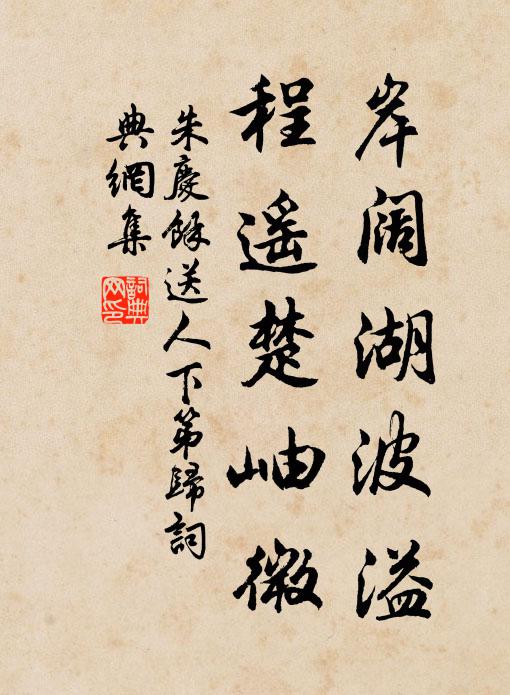 岸阔湖波溢
程遥楚岫微
朱慶餘送人下第歸詞
典網集
詞典
网印